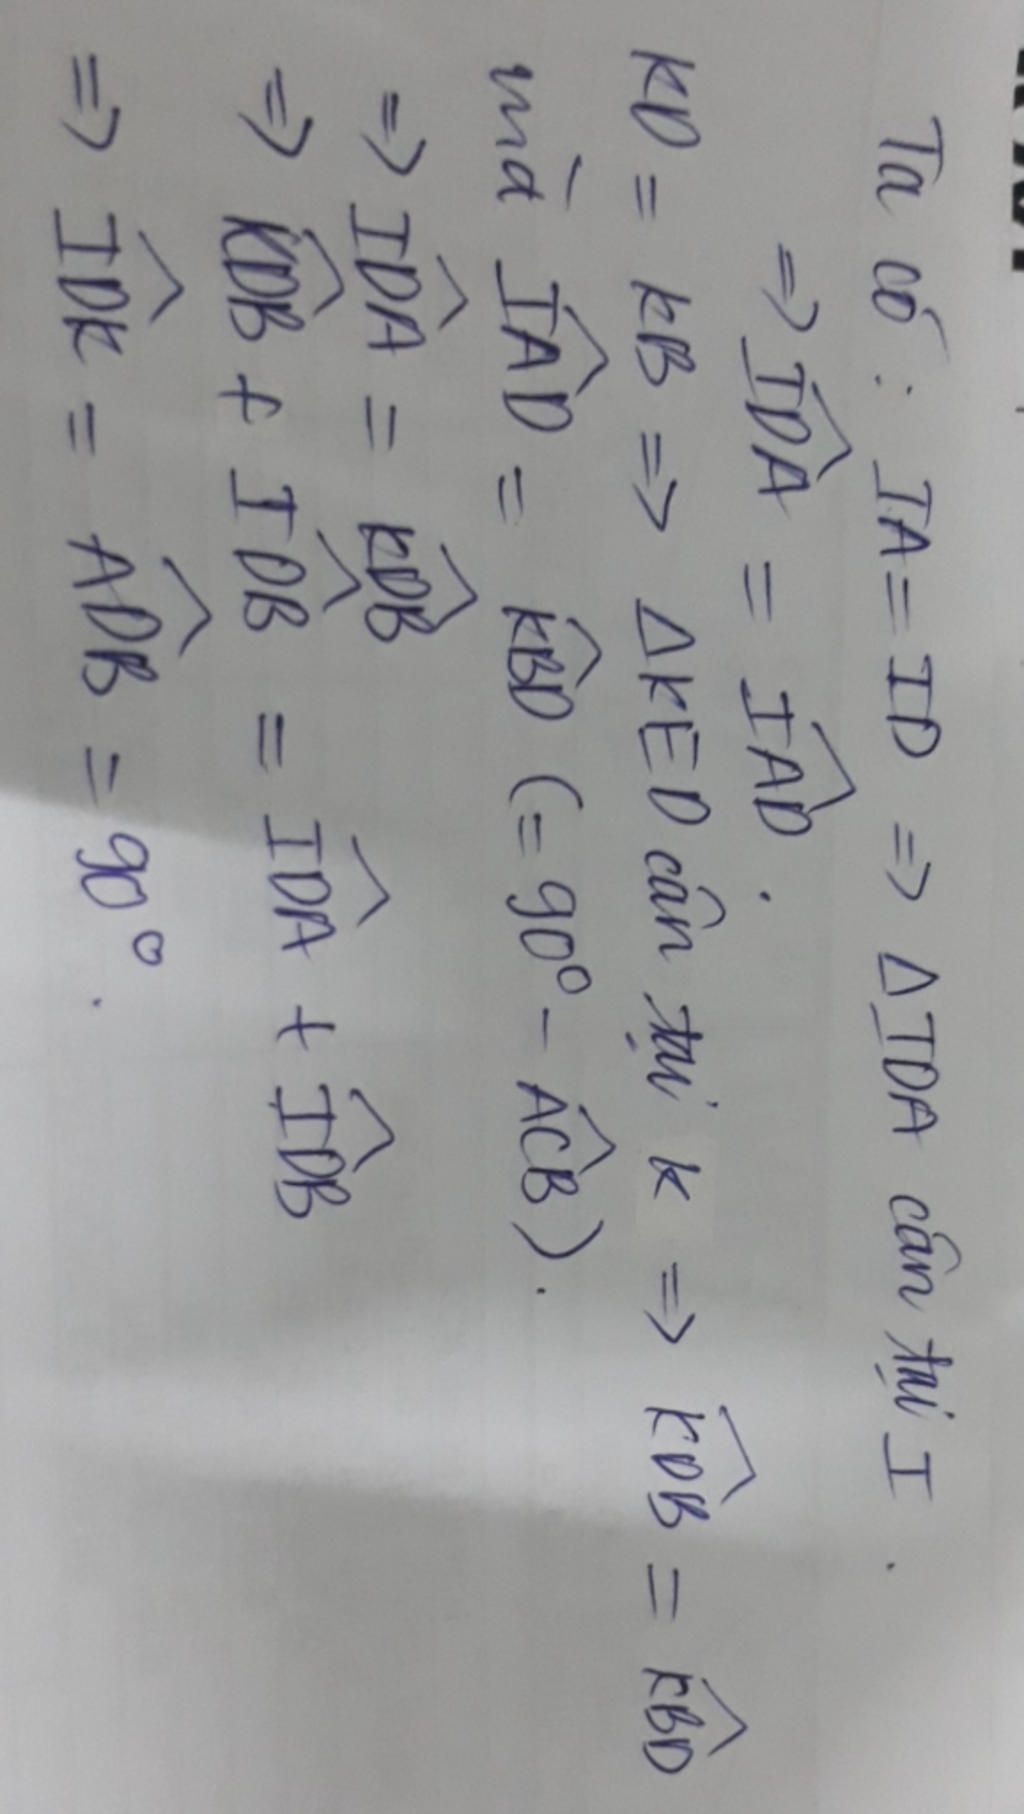 Ta có : IA = ID => ΔIDA cân tại I .
=> \widehat{IDA} = \widehat{IAD} .
KD = KB => ΔKED cân tại K => \widehat{KDB} = \widehat{KBD}
mà \widehat{IAD} = \widehat{KBD} (= 90° - \widehat{ACB} ) .
=> \widehat{IDA} = \widehat{KDB}
=> \widehat{KDB} + \widehat{IDB} = \widehat{IDA} + \widehat{IDB}
=> \widehat{IDK} = \widehat{ADB} = 90° .